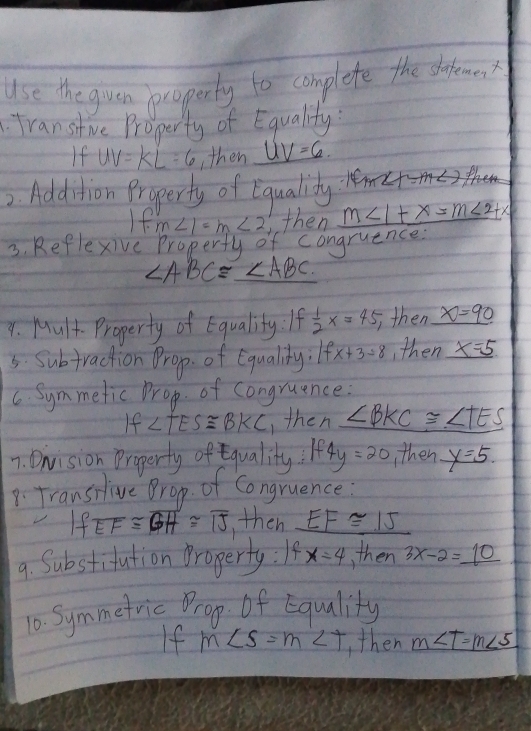 Use the given property to complete the statement.
1. Transitive Property of Equality:
If UV = KL = 6, then UV = 6.
2. Addition Property of Equality: If m∠1 = m∠2 then
If m∠1 = m∠2, then m∠1 + x = m∠2 + x
3. Reflexive Property of Congruence:
∠ABC ≅ ∠ABC.
4. Mult. Property of Equality: If 1/2 x = 45, then x = 90
5. Subtraction Prop. of Equality: If x + 3 = 8, then x = 5
6. Symmetic Prop. of Congruence:
If ∠TES ≅ BKC, then ∠BKC ≅ ∠TES
7. Division Property of Equality: If 4y = 20, then y = 5.
8. Transitive Prop. of Congruence:
If EF ≅ GH ≅ IJ, then EF ≅ IJ
9. Substitution Property: If x = 4, then 3x - 2 = 10
10. Symmetric Prop. Of Equality
If m∠S = m∠T, then m∠T = m∠S